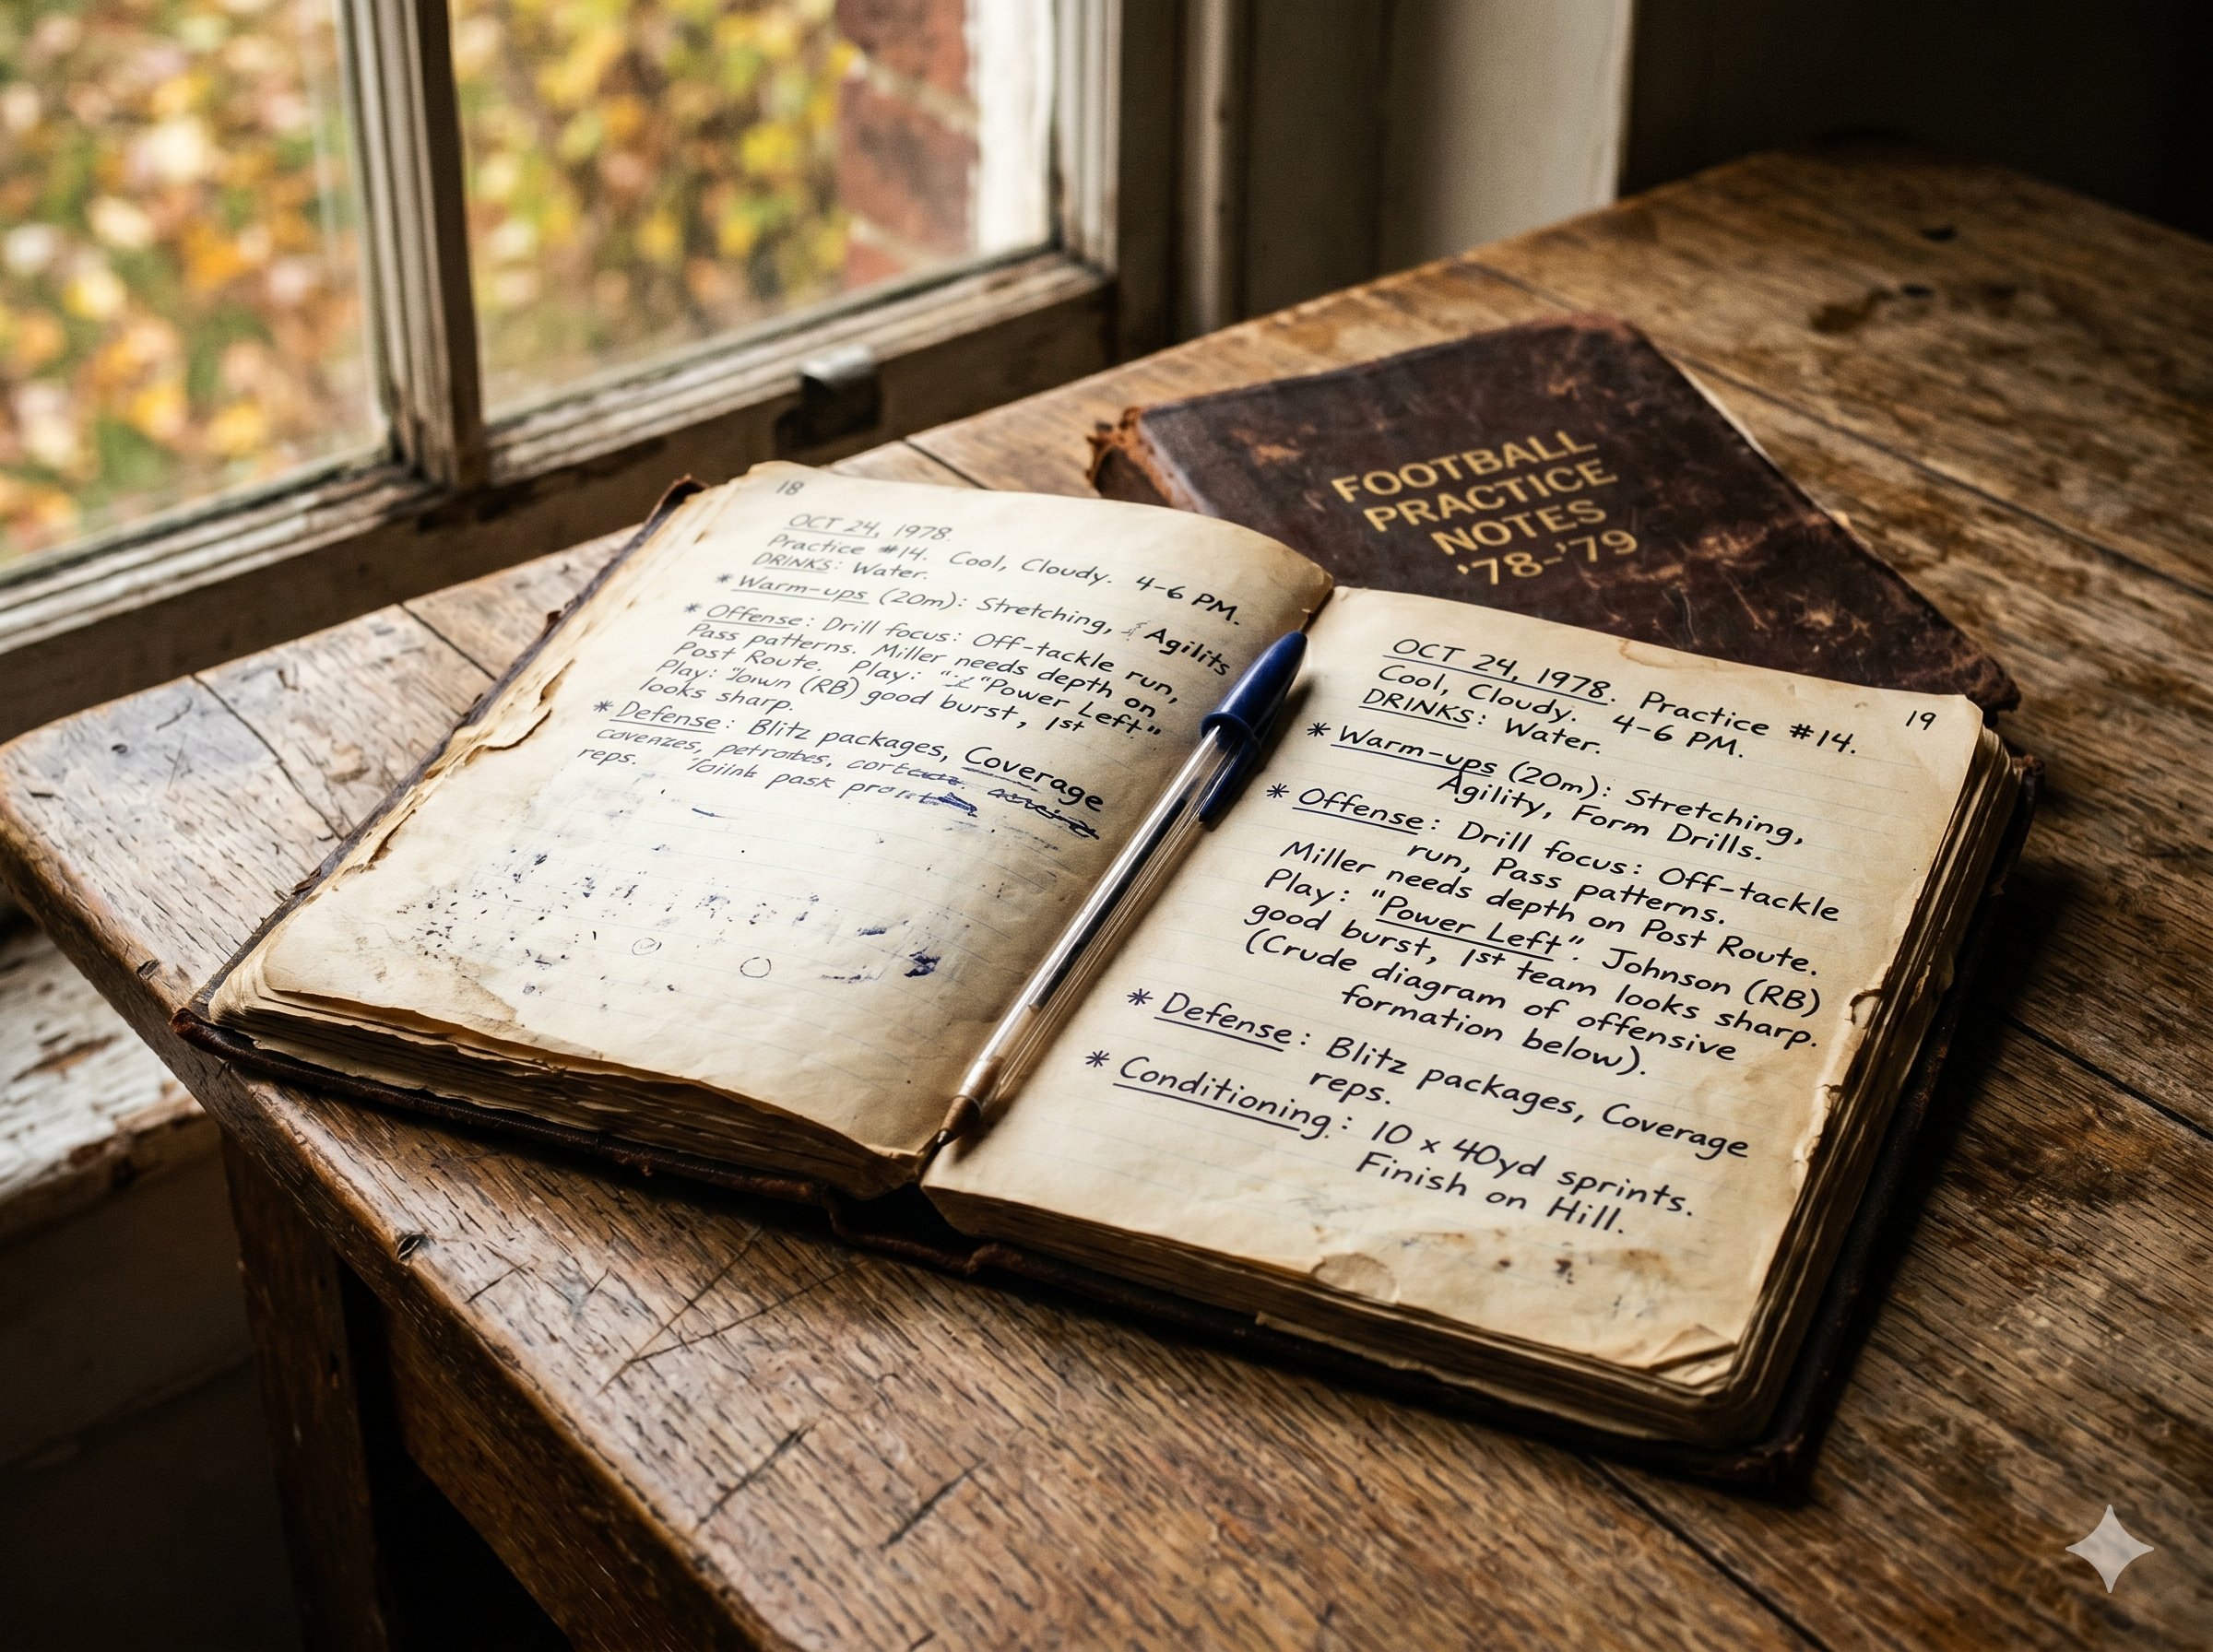 18
OCT 24, 1978.
Practice #14. Cool, Cloudy. 4-6 PM.
DRINKS: Water.
* Warm-ups (20m): Stretching, Agilits
* Offense: Drill focus: Off-tackle run,
Pass patterns. Miller needs depth on
Post Route. Play: "Power Left."
Play: (RB) good burst, 1st
looks sharp.
* Defense: Blitz packages, Coverage
reps.
FOOTBALL
PRACTICE
NOTES
'78-'79
19
OCT 24, 1978. Practice #14.
Cool, Cloudy. 4-6 PM.
DRINKS: Water.
* Warm-ups (20m): Stretching,
Agility, Form Drills.
* Offense: Drill focus: Off-tackle
run, Pass patterns.
Miller needs depth on Post Route.
Play: "Power Left". Johnson (RB)
good burst, 1st team looks sharp.
(Crude diagram of offensive
formation below).
* Defense: Blitz packages, Coverage
reps.
* Conditioning: 10 x 40yd sprints.
Finish on Hill.